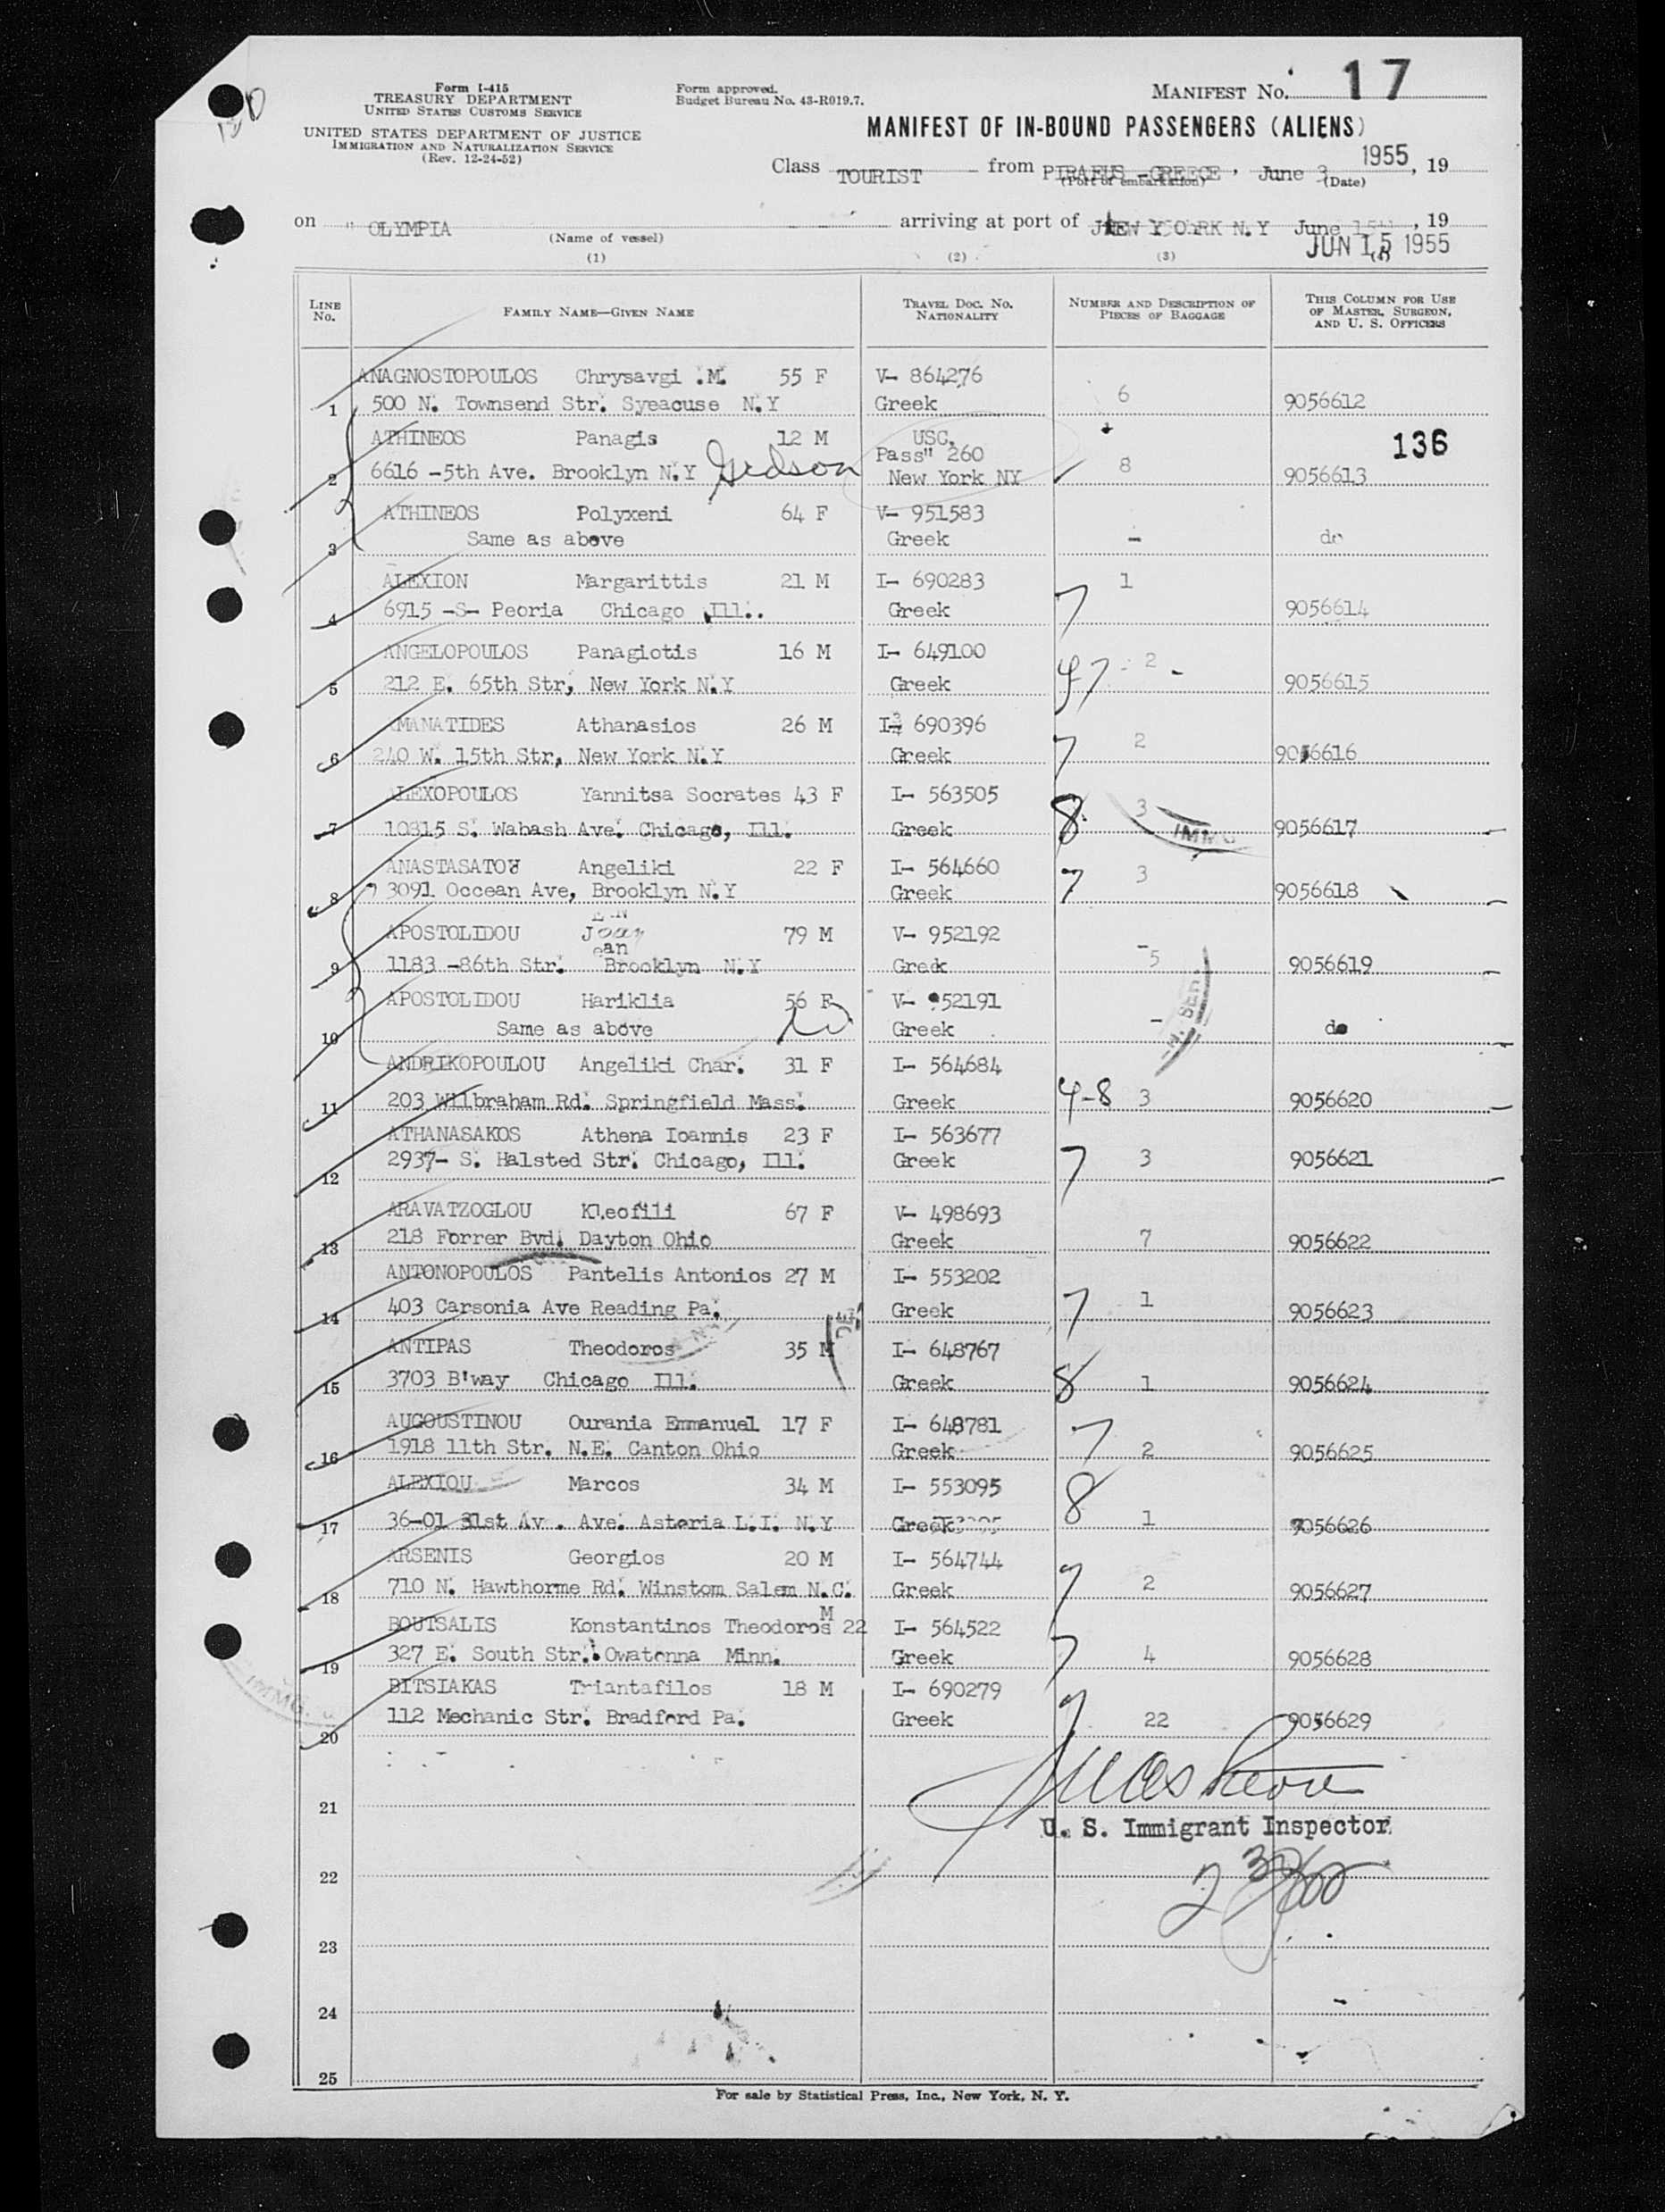 Form I-415
TREASURY DEPARTMENT
UNITED STATES CUSTOMS SERVICE
UNITED STATES DEPARTMENT OF JUSTICE
IMMIGRATION AND NATURALIZATION SERVICE
(Rev. 12-24-52)
Form approved.
Budget Bureau No. 43-R019.7.
MANIFEST No. 17
MANIFEST OF IN-BOUND PASSENGERS (ALIENS)
Class TOURIST from PIRAEUS -GREECE, June 3 1955, 19
(Port of embarkation) (Date)
on " OLYMPIA arriving at port of NEW YORK N.Y June 15th, 19
(Name of vessel) JUN 15 1955
(1) (2) (3) (4)
LINE No. FAMILY NAME—GIVEN NAME TRAVEL DOC. No. NATIONALITY NUMBER AND DESCRIPTION OF PIECES OF BAGGAGE THIS COLUMN FOR USE OF MASTER, SURGEON, AND U. S. OFFICERS
ANAGNOSTOPOULOS Chrysavgi .M. 55 F V- 864276
1 500 N. Townsend Str. Syeacuse N.Y Greek 6 9056612
ATHINEOS Panagis 12 M USC. Pass" 260 136
2 6616 -5th Ave. Brooklyn N.Y New York NY 8 9056613
ATHINEOS Polyxeni 64 F V- 951583
3 Same as above Greek - do
ALEXION Margarittis 21 M I- 690283 1
4 6915 -S- Peoria Chicago Ill.. Greek 7 9056614
ANGELOPOULOS Panagiotis 16 M I- 649100
5 212 E. 65th Str, New York N.Y Greek 47 2 - 9056615
AMANATIDES Athanasios 26 M I- 690396
6 240 W. 15th Str, New York N.Y Greek 7 2 9056616
ALEXOPOULOS Yannitsa Socrates 43 F I- 563505
7 10315 S. Wabash Ave. Chicago, Ill. Greek 8 3 9056617
ANASTASATOU Angeliki 22 F I- 564660
8 3091 Occean Ave, Brooklyn N.Y Greek 7 3 9056618
APOSTOLIDOU Jean 79 M V- 952192
9 1183 -86th Str. Brooklyn N.Y Greek -5 9056619
APOSTOLIDOU Hariklia 56 F V- 952191
10 Same as above Greek - do
ANDRIKOPOULOU Angeliki Char. 31 F I- 564684
11 203 Wilbraham Rd. Springfield Mass. Greek 4-8 3 9056620
ATHANASAKOS Athena Ioannis 23 F I- 563677
12 2937- S. Halsted Str. Chicago, Ill. Greek 7 3 9056621
ARAVATZOGLOU Kleofili 67 F V- 498693
13 218 Forrer Bvd. Dayton Ohio Greek 7 9056622
ANTONOPOULOS Pantelis Antonios 27 M I- 553202
14 403 Carsonia Ave Reading Pa. Greek 7 1 9056623
ANTIPAS Theodoros 35 M I- 648767
15 3703 B'way Chicago Ill. Greek 8 1 9056624
AUGOUSTINOU Ourania Emmanuel 17 F I- 648781
16 1918 11th Str. N.E. Canton Ohio Greek 7 2 9056625
ALEXIOU Marcos 34 M I- 553095
17 36-01 31st Av . Ave. Astoria L.I. N.Y Greek 8 1 9056626
ARSENIS Georgios 20 M I- 564744
18 710 N. Hawthorme Rd. Winstom Salem N.C. Greek 7 2 9056627
BOUTSALIS Konstantinos Theodoros 22 M I- 564522
19 327 E. South Str. Owatonna Minn. Greek 7 4 9056628
BITSIAKAS Triantafilos 18 M I- 690279
20 112 Mechanic Str. Bradford Pa. Greek 7 22 9056629
21
U. S. Immigrant Inspector
22
23
24
25
For sale by Statistical Press, Inc., New York, N. Y.